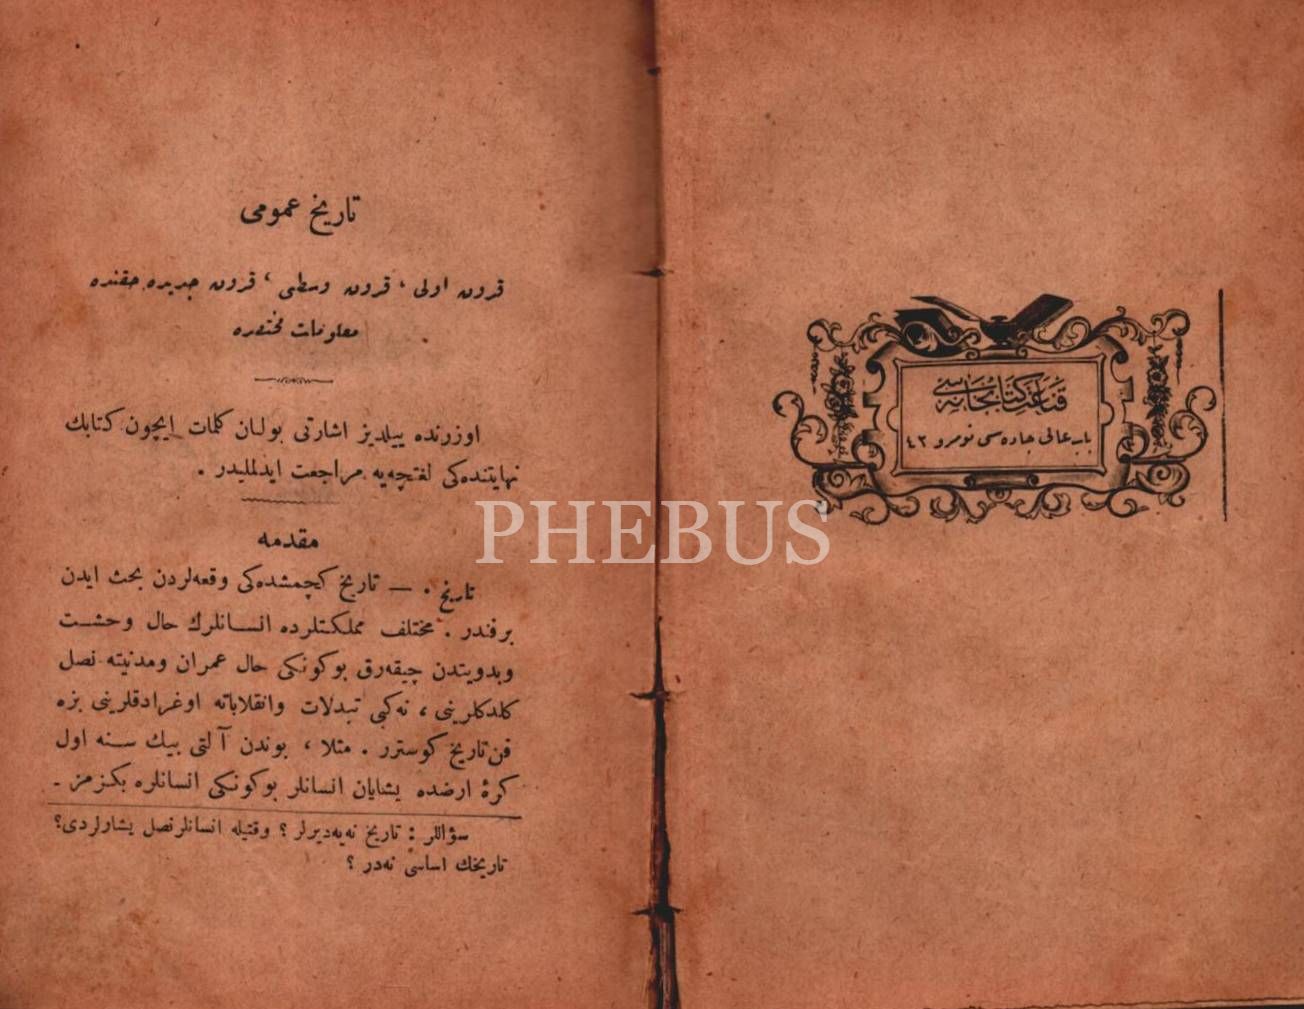 قناعت كتابخانه‌سى
باب عالى جاده‌سى نومرو ٤٢
تاريخ عمومى
قرون اولى ، قرون وسطى ، قرون جديده حقنده
معلومات مختصره
اوزرنده ييلديز اشارتى بولنان كلمات ايچون كتابك
نهايتنده‌كى لغتچه‌يه مراجعت ايدلمليدر .
مقدمه
تاريخ . — تاريخ كچمشده‌كى وقعه‌لردن بحث ايدن
برفندر . مختلف مملكتلرده انسانلرك حال وحشت
وبدويتدن چيقه‌رق بوكونكى حال عمران ومدنيته نصل
كلدكلرينى ، نه‌كبى تبدلات وانقلاباته اوغرادقلرينى بزه
فن تاريخ كوسترر . مثلا ، بوندن آلتى بيك سنه اول
كرۀ ارضده يشايان انسانلر بوكونكى انسانلره بكزمز -
سؤاللر : تاريخ نه‌يه‌ديرلر ؟ وقتيله انسانلرنصل يشاولردى؟
تاريخك اساسى نه‌در ؟
PHEBUS